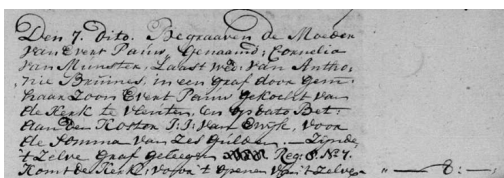 Den 7. Dito. Begraaven de Moeder
van Evert Pauw, Genaamd; Cornelia
van Munster, Laast wed: van Antho,
nie Bruines, in een graf door gem:
haar Zoon Evert Pauw gekocht van
de Kerk te vooren, en opdato Bet:
aan den Koster J: J: van Ewijk, voor
de Somma van Zes Gulden. — Zijnde
't Zelve graf gelegen Reg: 8. No 7.
Komt de Kerk; voor 't openen van 't Zelve — „ — 8: — „